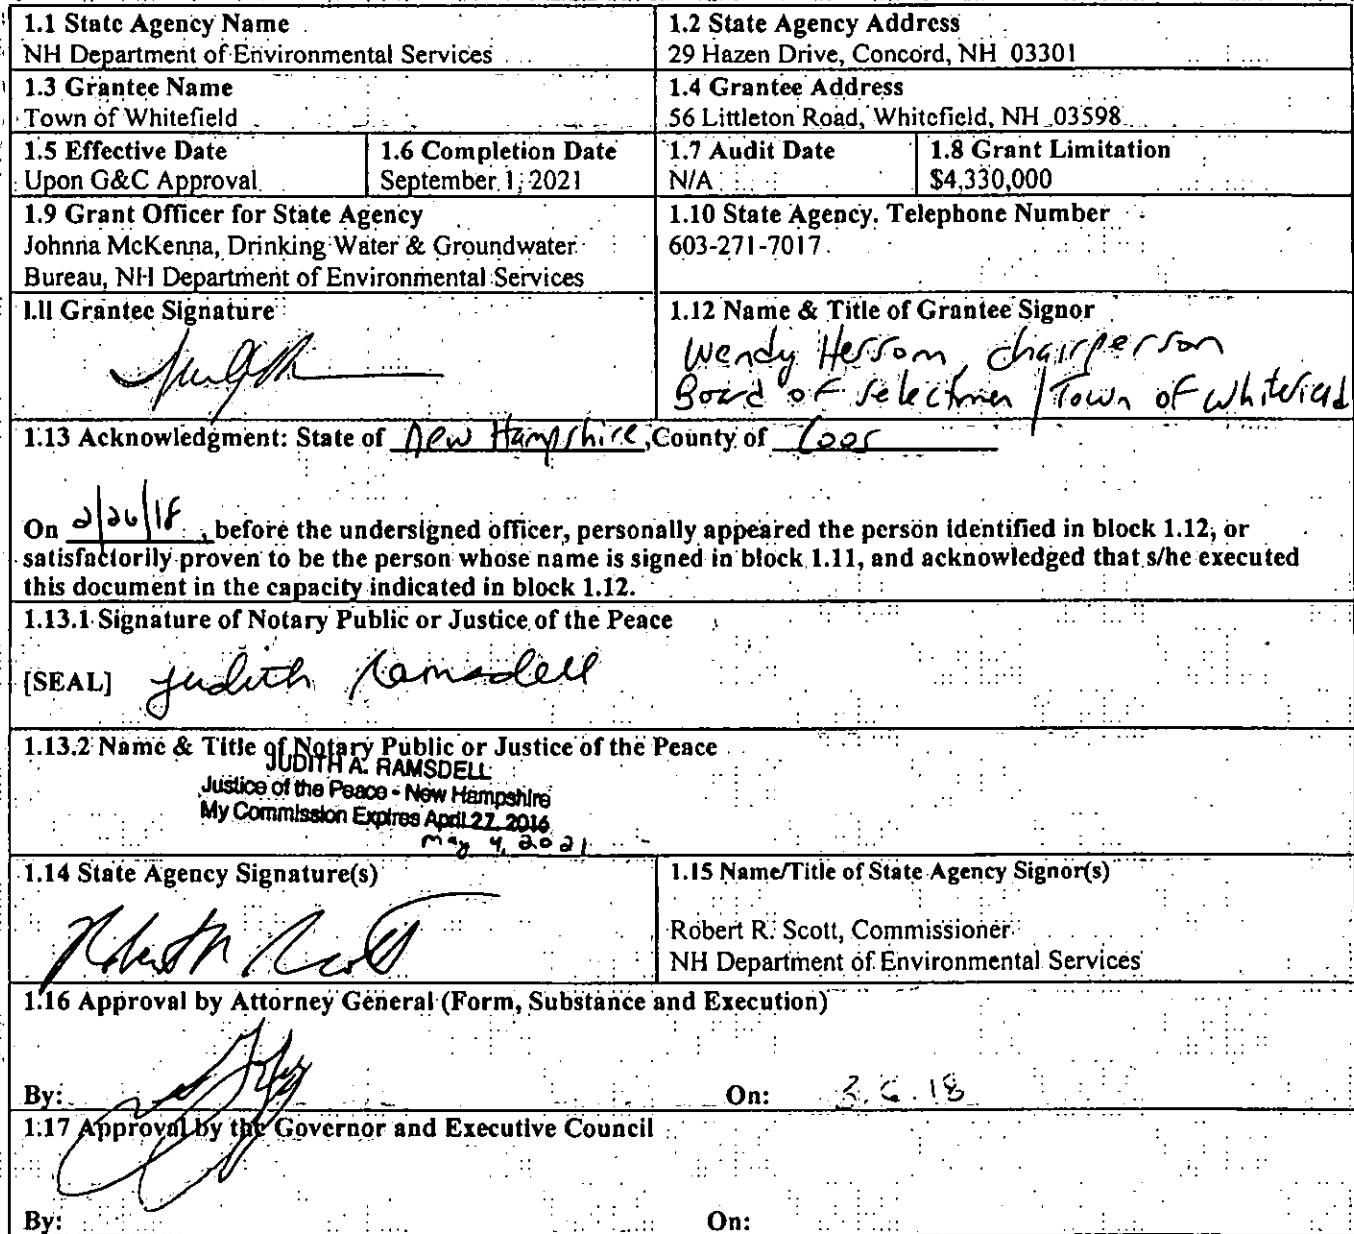 1.1 State Agency Name
NH Department of Environmental Services
1.2 State Agency Address
29 Hazen Drive, Concord, NH 03301
1.3 Grantee Name
Town of Whitefield
1.4 Grantee Address
56 Littleton Road, Whitefield, NH 03598
1.5 Effective Date
Upon G&C Approval
1.6 Completion Date
September 1, 2021
1.7 Audit Date
N/A
1.8 Grant Limitation
$4,330,000
1.9 Grant Officer for State Agency
Johnna McKenna, Drinking Water & Groundwater
Bureau, NH Department of Environmental Services
1.10 State Agency. Telephone Number
603-271-7017
1.11 Grantee Signature
1.12 Name & Title of Grantee Signor
Wendy Hersom chairperson
Board of Selectmen / Town of Whitefield
1.13 Acknowledgment: State of New Hampshire, County of Coos
On 2/26/18, before the undersigned officer, personally appeared the person identified in block 1.12, or
satisfactorily proven to be the person whose name is signed in block 1.11, and acknowledged that s/he executed
this document in the capacity indicated in block 1.12.
1.13.1 Signature of Notary Public or Justice of the Peace
[SEAL] Judith Ramsdell
1.13.2 Name & Title of Notary Public or Justice of the Peace
JUDITH A. RAMSDELL
Justice of the Peace - New Hampshire
My Commission Expires April 27, 2016
May 4, 2021
1.14 State Agency Signature(s)
Robert R Scott
1.15 Name/Title of State Agency Signor(s)
Robert R. Scott, Commissioner
NH Department of Environmental Services
1.16 Approval by Attorney General (Form, Substance and Execution)
By: On: 3.6.18
1.17 Approval by the Governor and Executive Council
By: On: